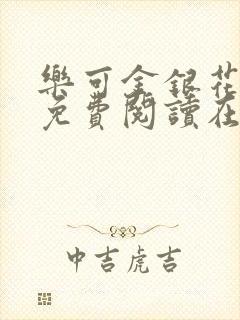 樂可金銀花
免費閱讀在
中吉虎吉